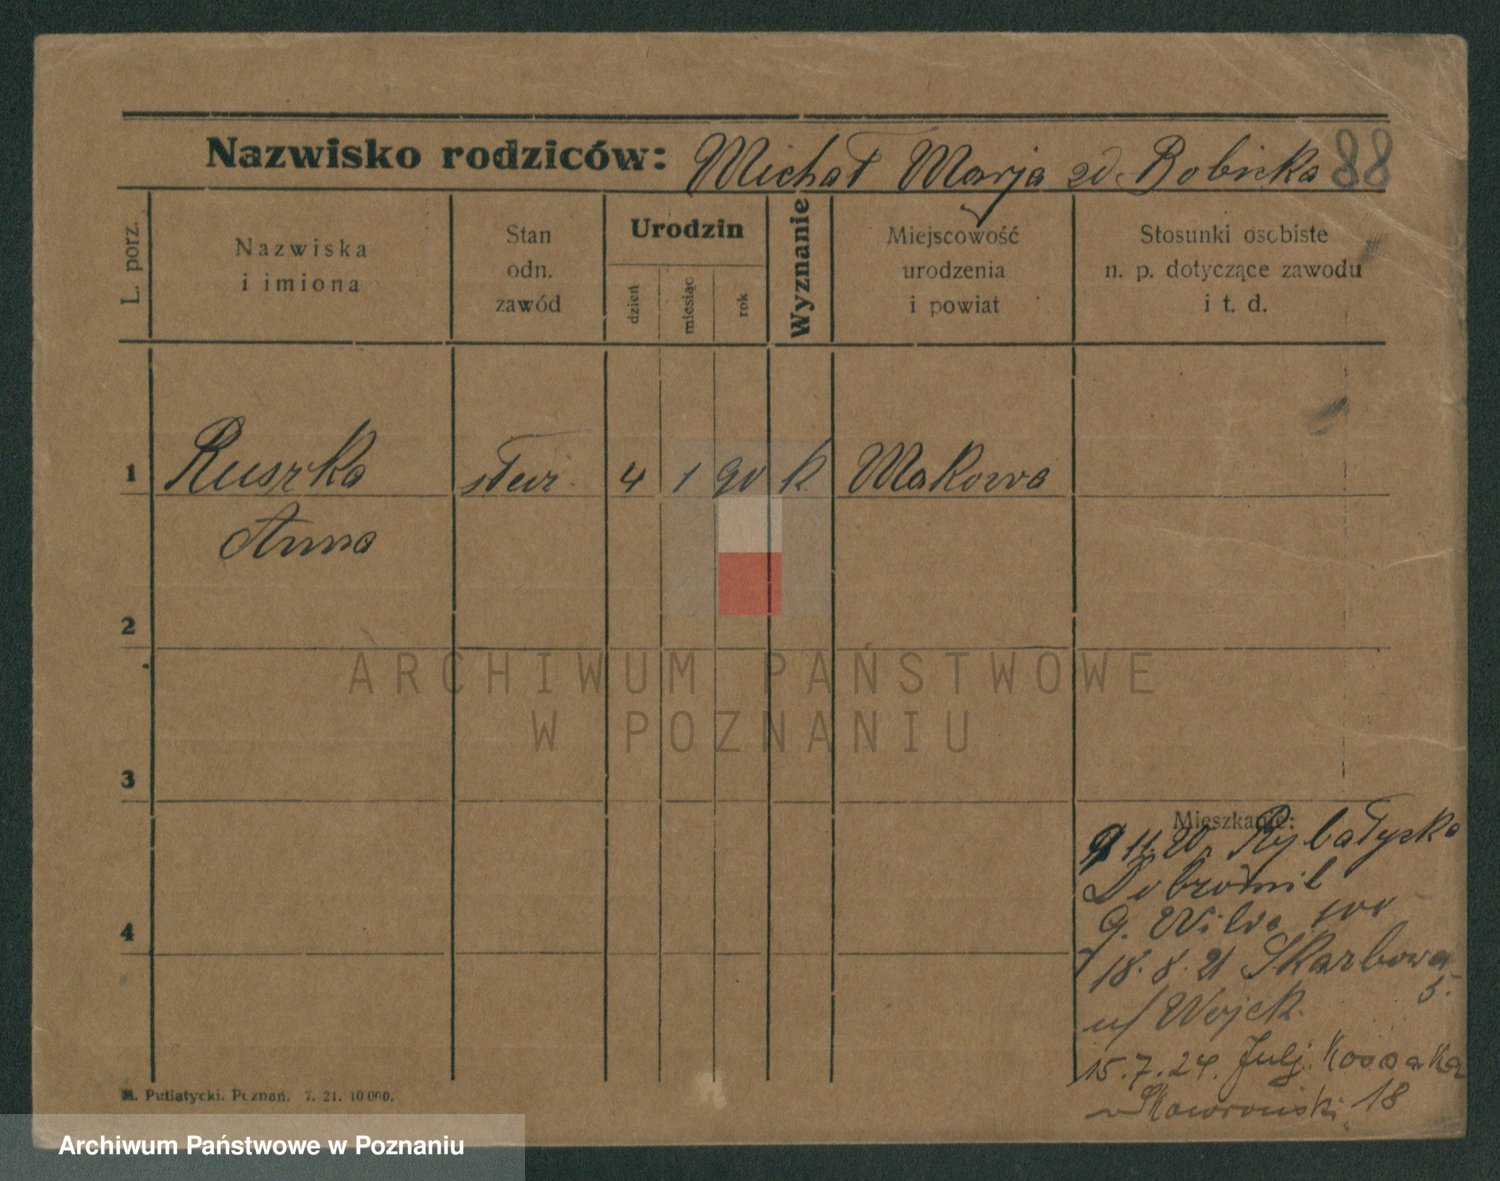 Nazwisko rodziców: Michał Marja zd. Bobicka 88
L. porz.
Nazwiska
i imiona
Stan
odn.
zawód
Urodzin
dzień
miesiąc
rok
Wyznanie
Miejscowość
urodzenia
i powiat
Stosunki osobiste
n. p. dotyczące zawodu
i t. d.
1 Ruszka służ. 4 1 90 k. Makowa
Anna
2
3
4
Mieszkanie:
9 11. 20. Rybałyska
Dobromil
G. Wilda 100
18. 8. 21 Skarbowa
5.
u/ Wojek.
15. 7. 24. Julj. Kossaka
Skowroński 18
M. Putiatycki. Poznań. 7. 21. 10 000.
ARCHIWUM PAŃSTWOWE
W POZNANIU
Archiwum Państwowe w Poznaniu